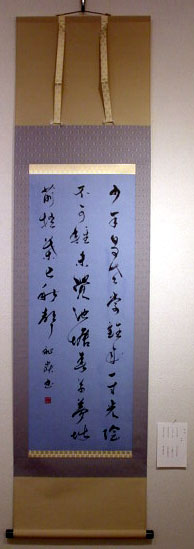 少年易老學難成一寸光陰
不可輕未覺池塘春草夢階
前梧葉已秋聲